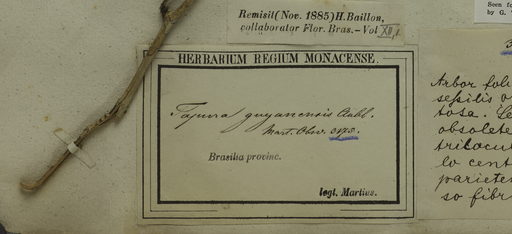 Remisit (Nov. 1885) H. Baillon,
collaborator Flor. Bras. – Vol XII,1
Seen fo
by G.
HERBARIUM REGIUM MONACENSE.
Tapura guyanensis Aubl.
Mart. Obs. 3175.
Brasilia provinc.
legt. Martius.
Arbor foli
sessilis o
tosa. Le
obsolete
trilocul
lo cent
parieten
so fibr